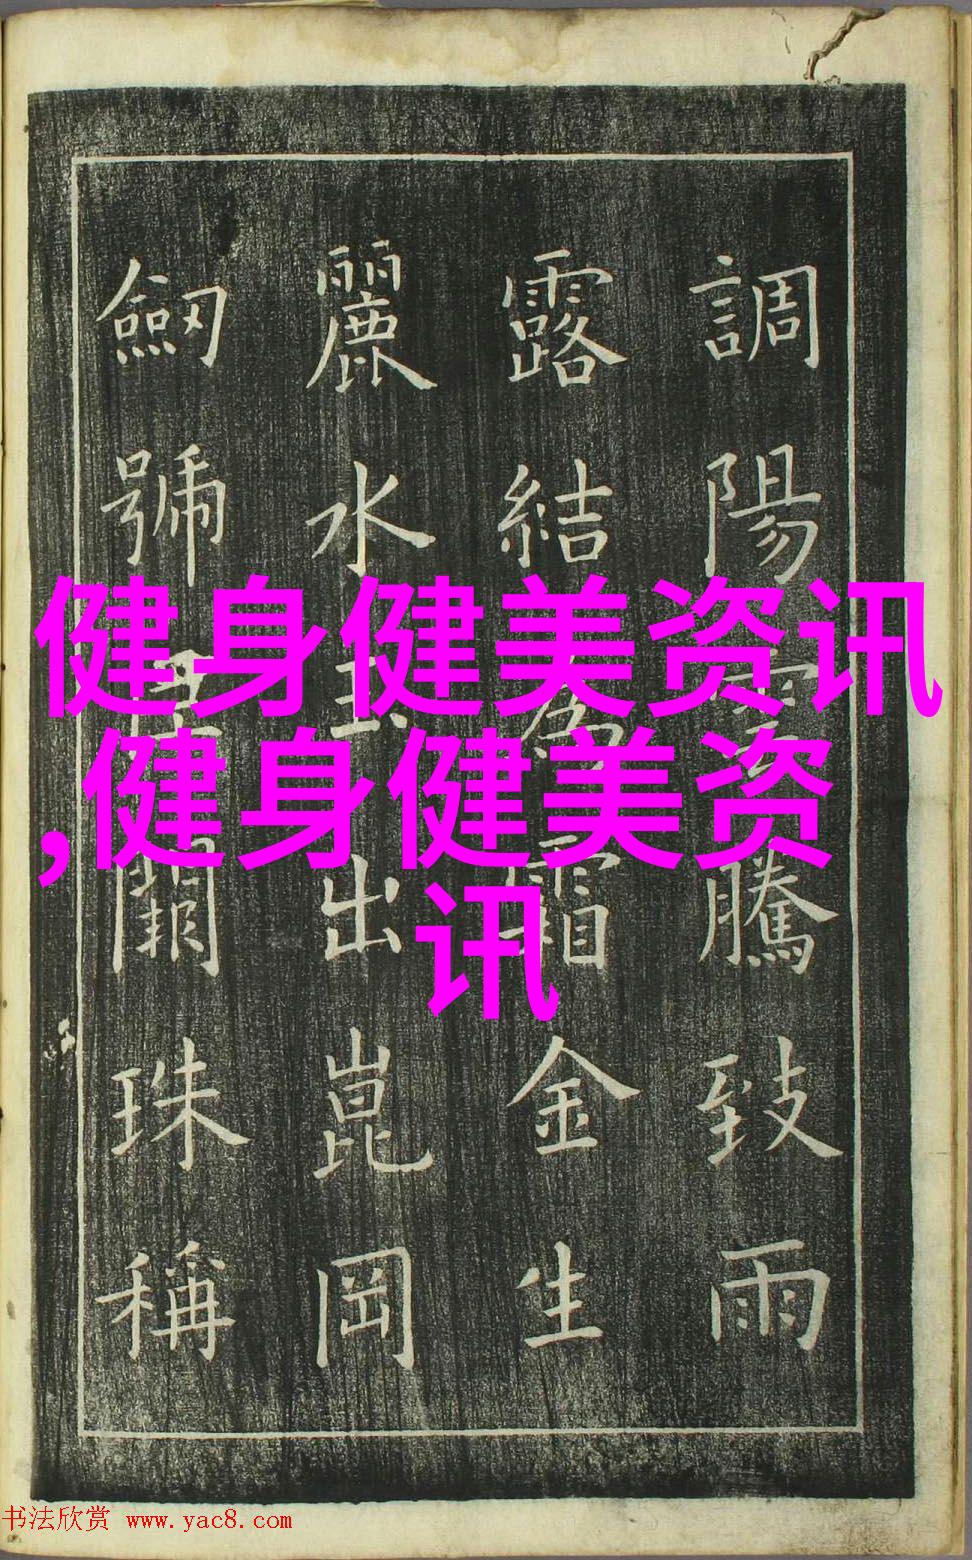 調陽雲騰致雨
露結爲霜金生
麗水玉出崑岡
劒號闕珠稱
健身健美资讯
,健身健美资
讯
书法欣赏 www.yac8.com